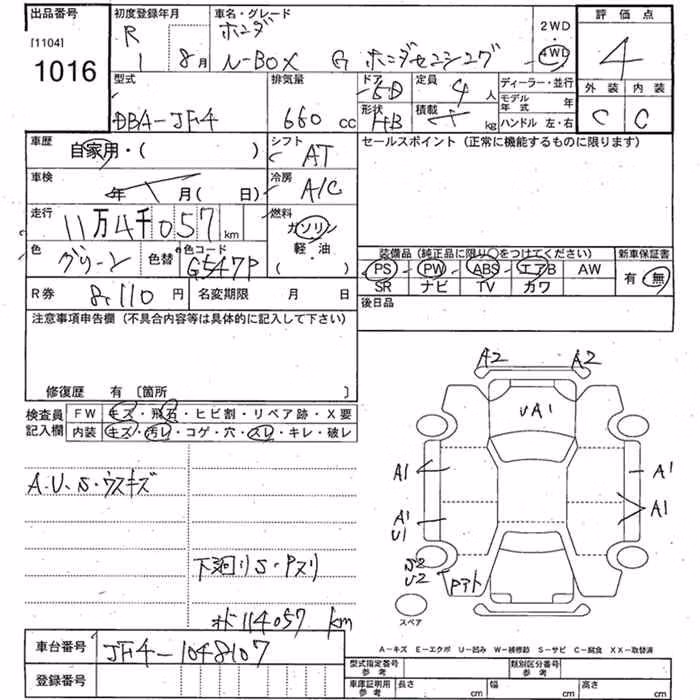 出品番号
[1104]
1016
初度登録年月
R
1 8月
車名・グレード
ホンダ
N-BOX G ホンダセンシング
2WD
4WD
評価点
4
外装 内装
C C
型式
DBA-JF4
排気量
660 cc
ドア
5D
定員
4 人
形状
HB
積載
kg
ディーラー・並行
モデル年式 年
ハンドル 左・右
車歴
自家用・( )
シフト
AT
セールスポイント (正常に機能するものに限ります)
車検
年 月( 日)
冷房
A/C
走行
11万4千057 km
燃料
ガソリン
軽・油
( )
色
グリーン
色替
色コード
G547P
装備品 (純正品に限り○をつけてください)
PS PW ABS エアB AW
SR ナビ TV カワ
新車保証書
有・無
R券
8,110 円
名変期限 月 日
後日品
注意事項申告欄 (不具合内容等は具体的に記入して下さい)
修復歴 有 〔箇所 〕
検査員記入欄
FW キズ・飛石・ヒビ割・リペア跡・X要
内装 キズ・汚レ・コゲ・穴・スレ・キレ・破レ
A.U.S.ウスキズ
下廻りS.Pヌリ
114057 km
A2 A2
UA1
A1 A1
A1
U1
A1
S2
U2
Pアト
スペア
A-キズ E-エクボ U-凹み W-補修跡 S-サビ C-腐食 XX-取替済
車台番号
JF4-1048107
登録番号
型式指定番号 参考
類別区分番号 参考
車庫証明用 参考
長さ cm
幅 cm
高さ cm